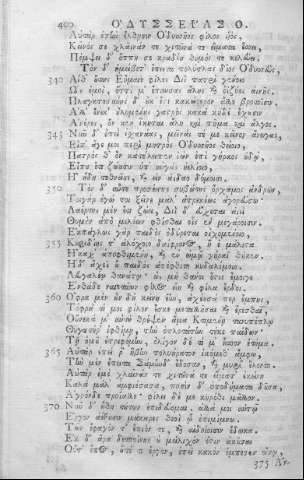 400 ΟΔΥΣΣΕΙΑΣ Ο.
Αὐτὰρ ἐπὴν ἔλθῃσιν Ὀδυσσῆος φίλος υἱὸς,
Κεῖνός σε χλαῖνάν τε χιτῶνά τε εἵματα ἕσσει,
Πέμψει δ' ὅππη σε κραδίη θυμός τε κελεύει.
Τὸν δ' ἠμείβετ' ἔπειτα πολύτλας δῖος Ὀδυσσεὺς,
340 Αἴθ' οὕτως Εὔμαιε φίλος Διὶ πατρὶ γένοιο
Ὡς ἐμοὶ, ὅττι μ' ἔπαυσας ἄλης καὶ ὀϊζύος αἰνῆς.
Πλαγκτοσύνης δ' οὐκ ἔστι κακώτερον ἄλλο βροτοῖσιν
Ἀλλ' ἕνεκ' οὐλομένης γαστρὸς κακὰ κήδε' ἔχουσιν
Ἀνέρες, ὅν κεν ἵκηται ἄλη καὶ πῆμα καὶ ἄλγος.
345 Νῦν δ' ἐπεὶ ἰσχανάᾳς, μεῖναί τέ με κεῖνον ἄνωγας,
Εἴπ' ἄγε μοι περὶ μητρὸς Ὀδυσσῆος θείοιο,
Πατρός θ' ὃν κατέλειπεν ἰὼν ἐπὶ γήραος οὐδῷ,
Εἴ που ἔτι ζώουσιν ὑπ' αὐγὰς ἠελίοιο,
Ἢ ἤδη τεθνᾶσι, καὶ εἰν ἀΐδαο δόμοισι.
350 Τὸν δ' αὖτε προσέειπε συβώτης ὄρχαμος ἀνδρῶν,
Τοιγὰρ ἐγώ τοι ξεῖνε μάλ' ἀτρεκέως ἀγορεύσω·
Λαέρτης μὲν ἔτι ζώει, Διὶ δ' εὔχεται αἰεὶ
Θυμὸν ἀπὸ μελέων φθίσθαι οἷς ἐν μεγάροισιν.
Ἐκπάγλως γὰρ παιδὸς ὀδύρεται οἰχομένοιο,
355 Κουριδίης τ' ἀλόχοιο δαΐφρονος, ἥ ἑ μάλιστα
Ἤκαχ' ἀποφθιμένη, καὶ ἐν ὠμῷ γήραϊ θῆκεν.
Ἡ δ' ἄχεϊ οὗ παιδὸς ἀπέφθιτο κυδαλίμοιο,
Λευγαλέῳ θανάτῳ· ὡς μὴ θάνοι ὅστις ἔμοιγε
Ἐνθάδε ναιετάων φίλος εἴη καὶ φίλα ἔρδοι.
360 Ὄφρα μὲν οὖν δὴ κείνη ἔην, ἀχέουσά περ ἔμπης,
Τόφρα τί μοι φίλον ἔσκε μεταλλῆσαι καὶ ἐρέσθαι,
Οὕνεκά μ' αὐτὴ θρέψεν ἅμα Κτιμένῃ τανυπέπλῳ
Θυγατέρ' ἰφθίμῃ, τὴν ὁπλοτάτην τέκε παίδων·
Τῇ ὁμοῦ ἐτρεφόμην, ὀλίγον δέ τί μ' ἧσσον ἐτίμα.
365 Αὐτὰρ ἐπεί ῥ' ἥβην πολυήρατον ἱκόμεθ' ἄμφω,
Τὴν μὲν ἔπειτα Σάμηνδ' ἔδοσαν, καὶ μυρί' ἕλοντο.
Αὐτὰρ ἐμὲ χλαῖνάν τε χιτῶνά τε εἵματ' ἐκείνη
Καλὰ μάλ' ἀμφιέσασα, ποσὶν δ' ὑποδήματα δοῦσα,
Ἀγρόνδε προΐαλλε· φίλει δέ με κηρόθι μᾶλλον.
370 Νῦν δ' ἤδη τούτων ἐπιδεύομαι. ἀλλά μοι αὐτῷ
Ἔργον ἀέξουσιν μάκαρες θεοὶ ᾧ ἐπιμίμνω.
Τῶν ἔφαγόν τ' ἔπιόν τε, καὶ αἰδοίοισιν ἔδωκα.
Ἐκ δ' ἄρα δεσποίνης οὐ μείλιχον ἔστιν ἀκοῦσαι
Οὔτ' ἔπος, οὔτέ τι ἔργον, ἐπεὶ κακὸν ἔμπεσεν οἴκῳ,
375 Ἄν-